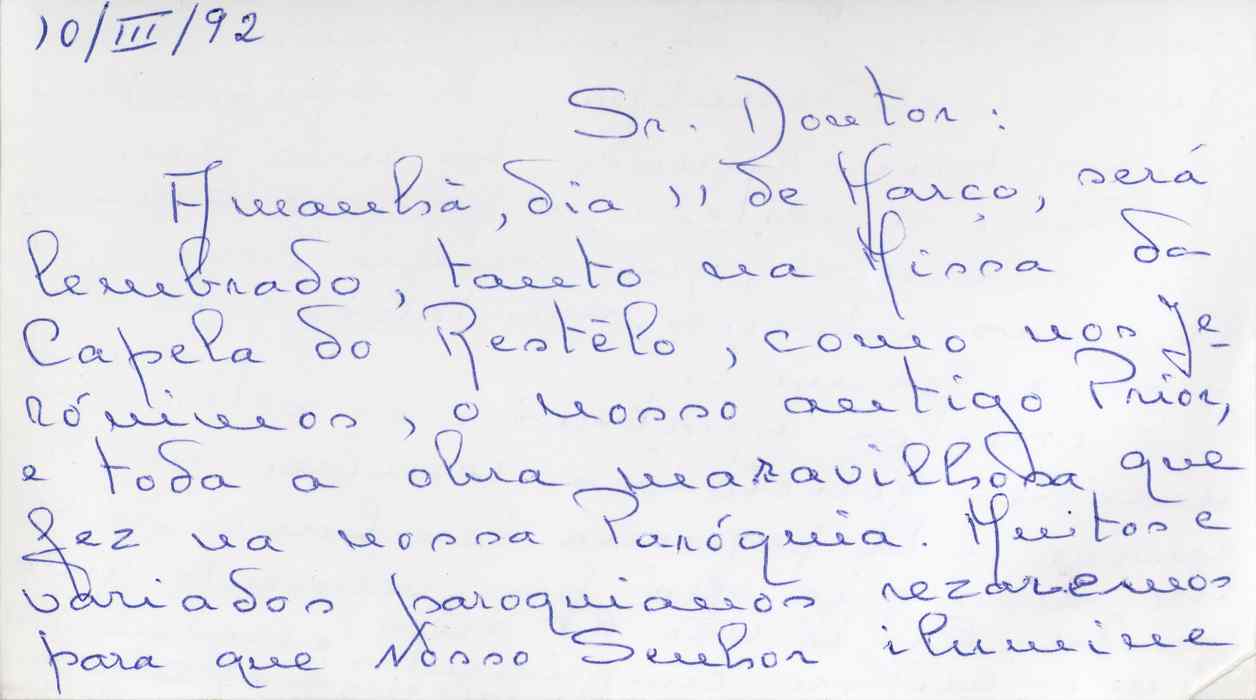 10/III/92
Sr. Doutor:
Amanhã, dia 11 de Março, será
lembrado, tanto na Missa da
Capela do Restêlo, como nos Je-
rónimos, o nosso antigo Prior,
e toda a obra maravilhosa que
fez na nossa Paróquia. Muitos e
variados paroquianos rezaremos
para que Nosso Senhor ilumine